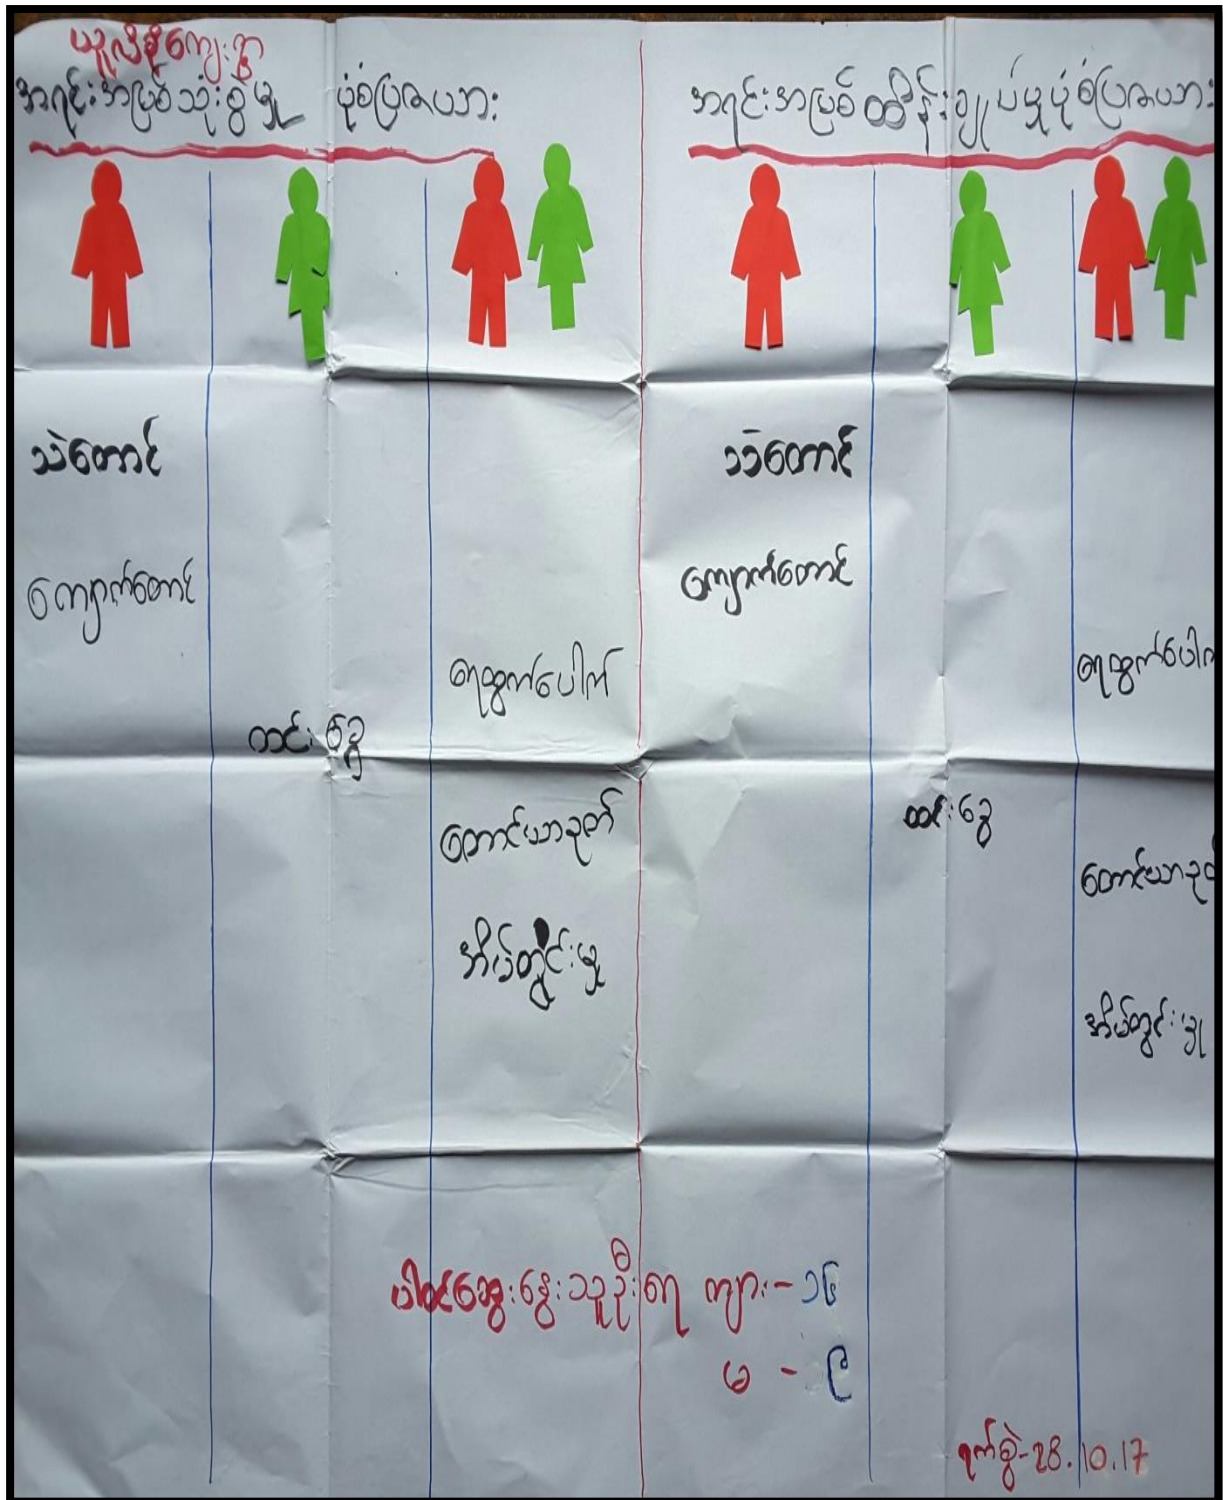 ယူလီစိုကျေးရွာ
အရင်းအမြစ်သုံးစွဲမှု ပုံစံပြဇယား
အရင်းအမြစ်ထိန်းချုပ်မှုပုံစံပြဇယား
သဲတောင်
ကျောက်တောင်
ရေထွက်ပေါက်
ထင်းခွေ
တောင်ယာခုတ်
အိမ်တွင်းမှု
သဲတောင်
ကျောက်တောင်
ရေထွက်ပေါက်
ထင်းခွေ
တောင်ယာခုတ်
အိမ်တွင်းမှု
ပါဝင်ဆွေးနွေးသူဦးရေ ကျား - ၁၆
မ - ၉
ရက်စွဲ - 28.10.17